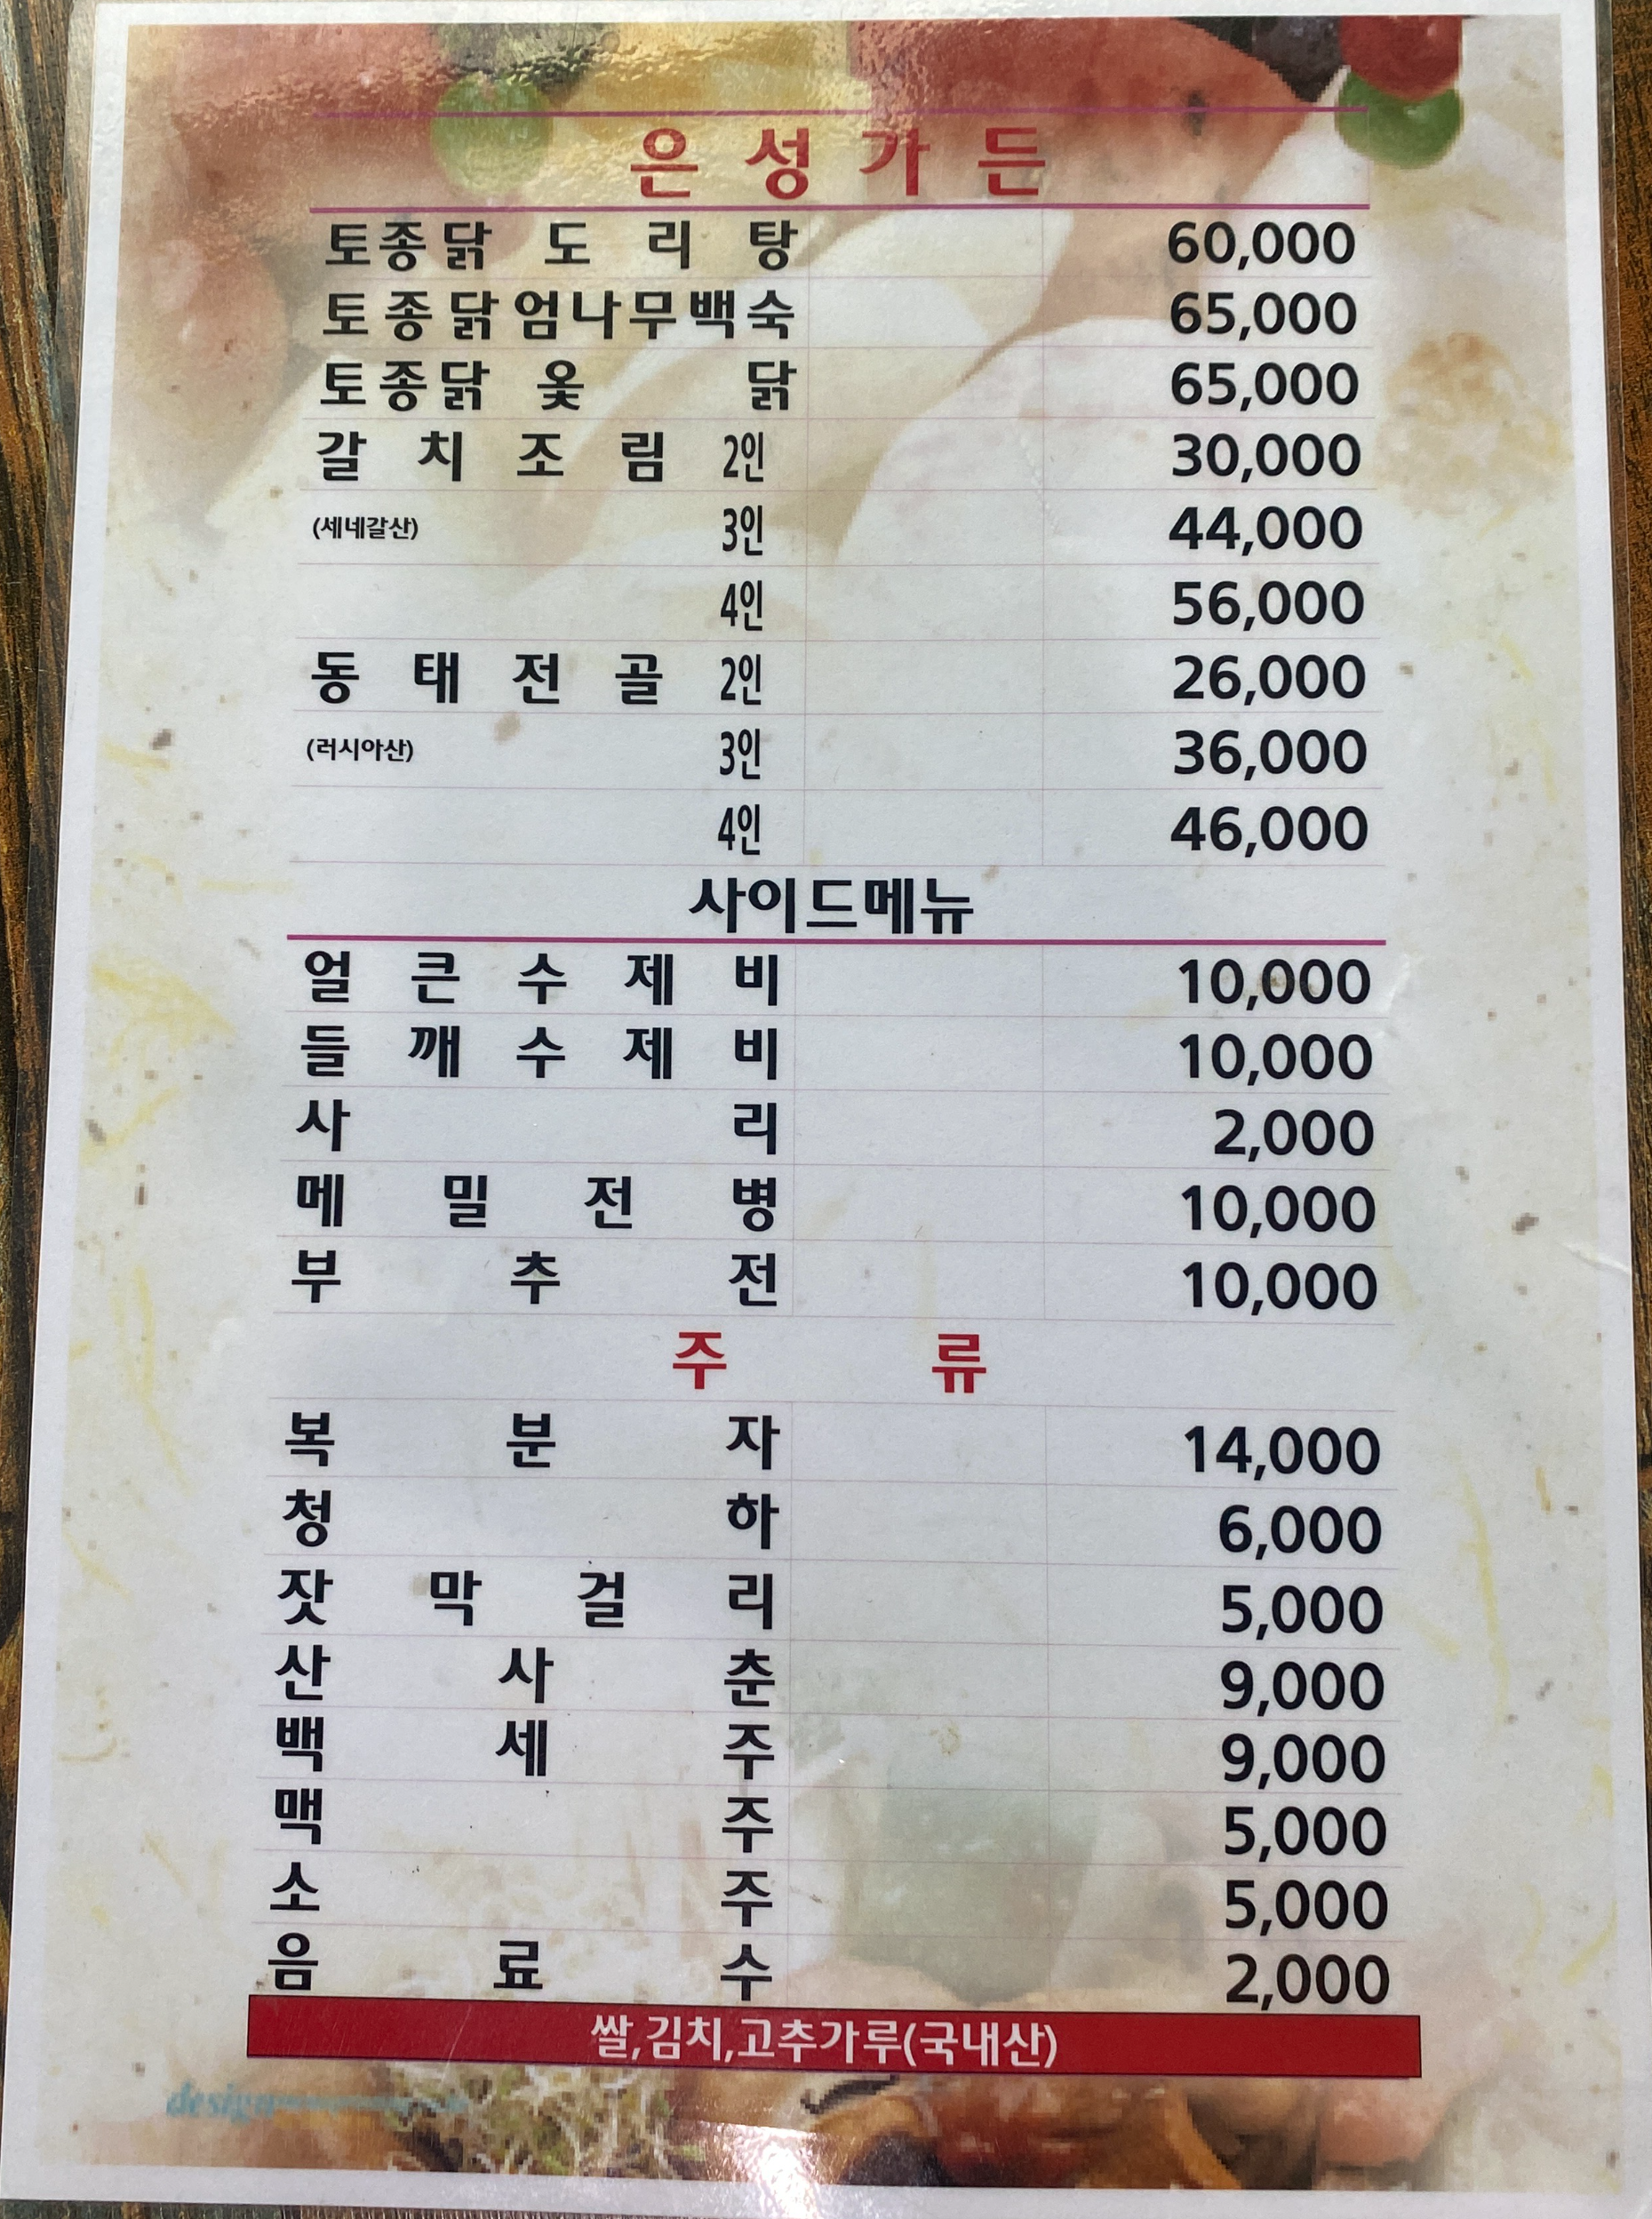 은성가든
토종닭 도리탕 60,000
토종닭엄나무백숙 65,000
토종닭 옻닭 65,000
갈치조림 2인 30,000
(세네갈산) 3인 44,000
4인 56,000
동태전골 2인 26,000
(러시아산) 3인 36,000
4인 46,000
사이드메뉴
얼큰수제비 10,000
들깨수제비 10,000
사리 2,000
메밀전병 10,000
부추전 10,000
주류
복분자 14,000
청하 6,000
잣막걸리 5,000
산사춘 9,000
백세주 9,000
맥주 5,000
소주 5,000
음료수 2,000
쌀,김치,고추가루(국내산)
design